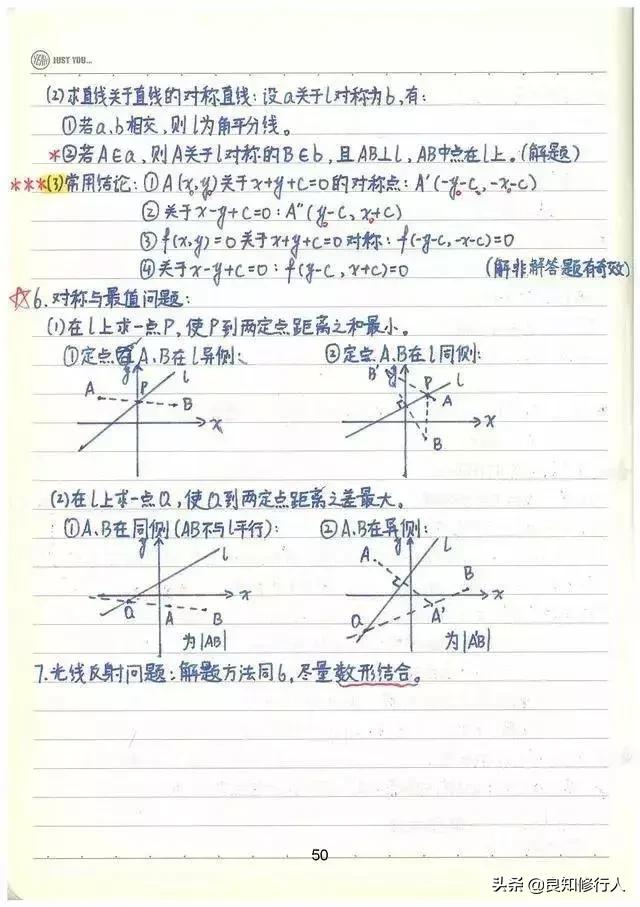 JUST YOU...
(2)求直线关于直线的对称直线:设a关于l对称为b,有:
①若a、b相交,则l为角平分线。
*②若A∈a,则A关于l对称的B∈b,且AB⊥l,AB中点在l上。(解题)
***(3)常用结论:①A(x,y)关于x+y+C=0的对称点:A'(-y-C,-x-C)
②关于x-y+C=0:A''(y-C,x+C)
③f(x,y)=0关于x+y+C=0对称:f(-y-C,-x-C)=0
④关于x-y+C=0:f(y-C,x+C)=0 (解非解答题有奇效)
☆6.对称与最值问题:
(1)在l上求一点P,使P到两定点距离之和最小。
①定点A、B在l异侧: ②定点A、B在l同侧:
y l A P B x
B' y l P A x B
(2)在l上求一点Q,使Q到两定点距离之差最大。
①A、B在同侧(AB不与l平行): ②A、B在异侧:
y l x Q A B
A y l B x A' Q
为|AB| 为|A'B|
7.光线反射问题:解题方法同6,尽量数形结合。
50
头条@良知修行人